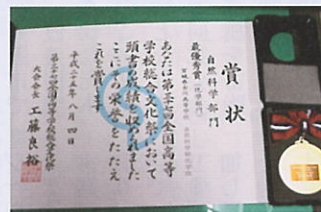 賞状
自然科学部門
最優秀賞(化学部門)
あなたは第三十七回全国高等
学校総合文化祭において
頭書の成績を収められました
ここにその栄誉をたたえ
これを賞します
平成二十五年八月四日
第三十七回全国高等学校総合文化祭
大会会長 工藤良裕